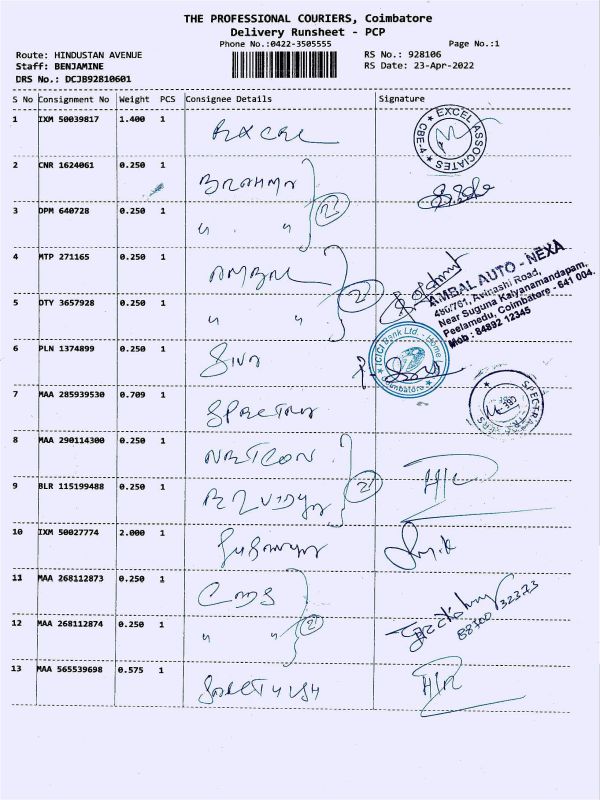 THE PROFESSIONAL COURIERS, Coimbatore
Delivery Runsheet - PCP
Phone No.:0422-3505555 Page No.:1
Route: HINDUSTAN AVENUE RS No.: 928106
Staff: BENJAMINE RS Date: 23-Apr-2022
DRS No.: DCJB92810601
S No Consignment No Weight PCS Consignee Details Signature
1 IXM 50039817 1.400 1 EXCEL
EXCEL ASSOCIATES CBE-4
2 CNR 1624061 0.250 1 BRAHMA
3 DPM 640728 0.250 1 " "
2
4 MTP 271165 0.250 1 AMBAL
5 DTY 3657928 0.250 1 " "
2
AMBAL AUTO - NEXA
480/761, Avinashi Road,
Near Suguna Kalyanamandapam,
Peelamedu, Coimbatore - 641 004.
Mob : 84892 12345
6 PLN 1374899 0.250 1 Siva
ICICI Bank Ltd. - Home
Coimbatore
7 MAA 285939530 0.709 1 SPECTRA
SPECTRA
8 MAA 290114300 0.250 1 NETCON
9 BLR 115199488 0.250 1
2
10 IXM 50027774 2.000 1
11 MAA 268112873 0.250 1 CMS
12 MAA 268112874 0.250 1 " "
2
88700 32373
13 MAA 565539698 0.575 1